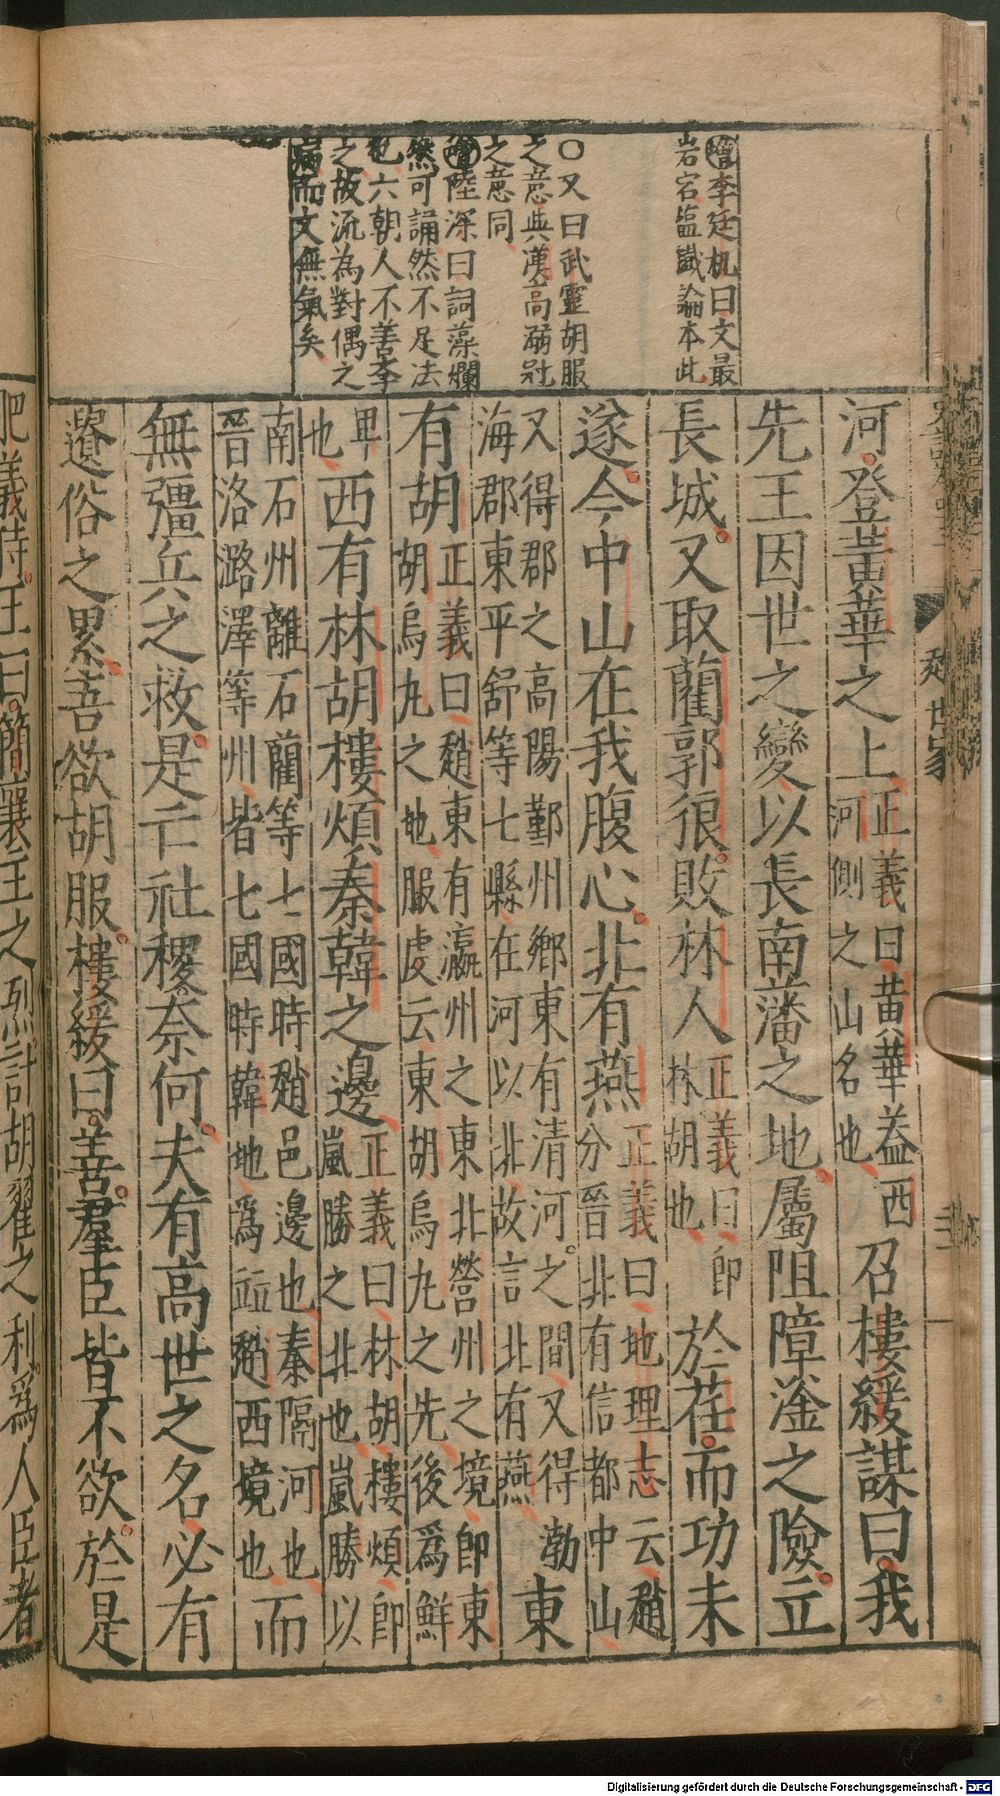 增李廷机曰文最
岩宕監鐵論本此
○又曰武靈胡服
之意與漢高溺冠
之意同
增陸深曰詞藻爛
然可誦然不足法
也六朝人不善李
之故流為對偶之
病而文無氣矣
趙世家
河登黃華之上正義曰黃華葢西河側之山名也召樓緩謀曰我
先王因世之變以長南藩之地屬阻障滏之險立
長城又取藺郭很敗林人正義曰即林胡也於荏而功未
遂今中山在我腹心北有燕正義曰地理志云趙分晉北有信都中山
又得郡之高陽鄚州鄉東有清河之間又得渤海郡東平舒等七縣在河以北故言北有燕東
有胡正義曰趙東有瀛州之東北營州之境即東胡烏丸之地服虔云東胡烏丸之先後爲鮮
卑也西有林胡樓煩秦韓之邊正義曰林胡樓煩即嵐勝之北也嵐勝以
南石州離石藺等七國時趙邑邊也秦隔河也晉洛潞澤等州皆七國時韓地爲竝趙西境也而
無彊兵之救是亡社稷奈何夫有高世之名必有
遺俗之累吾欲胡服樓緩曰善羣臣皆不欲於是
肥義侍王曰簡襄主之烈計胡翟之利爲人臣者
Digitalisierung gefördert durch die Deutsche Forschungsgemeinschaft - DFG